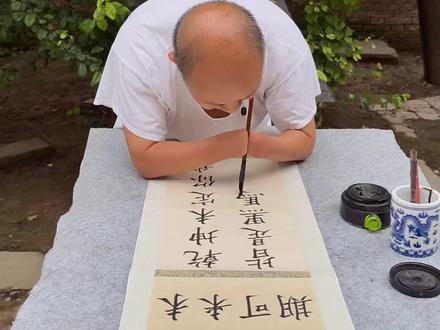 未来可期
乾坤未定你
皆是黑馬